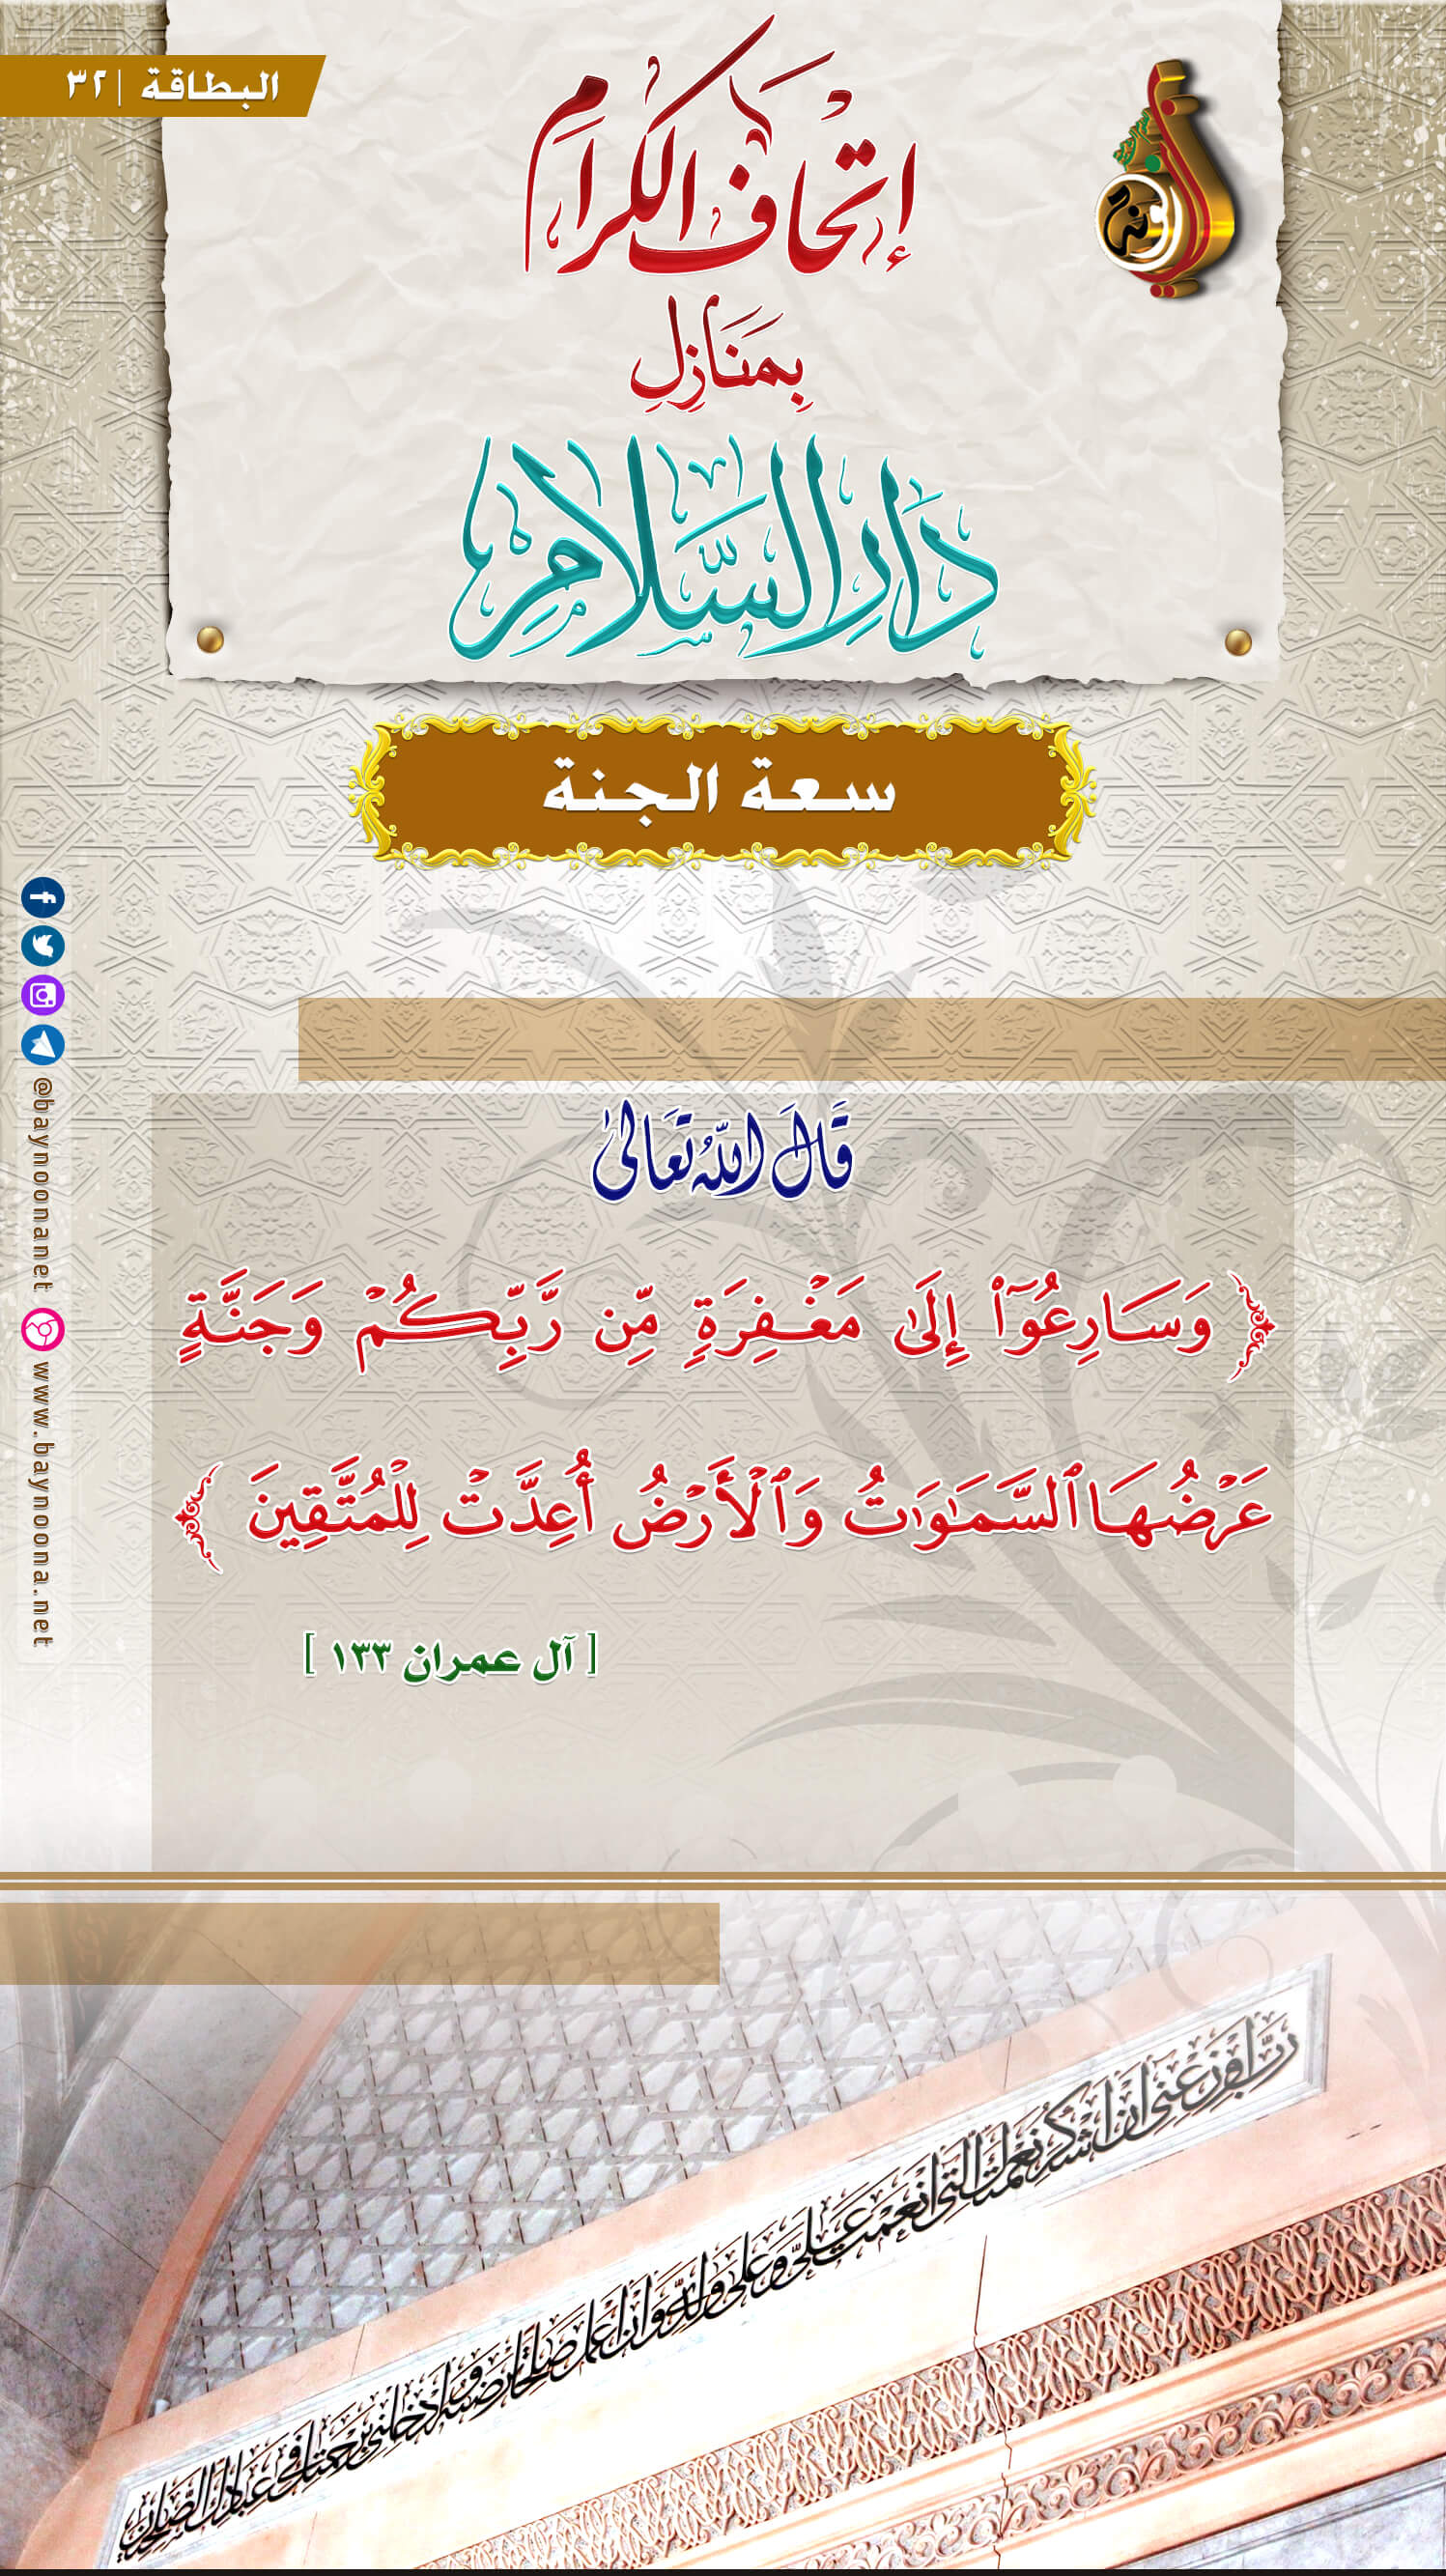 البطاقة | ٣٢
إتحاف الكرام
بِمَنَازِلِ
دَارِ السَّلَامِ
بينونة
سعة الجنة
قَالَ اللَّهُ تَعَالَىٰ
﴿ وَسَارِعُوٓا۟ إِلَىٰ مَغْفِرَةٍ مِّن رَّبِّكُمْ وَجَنَّةٍ
عَرْضُهَا ٱلسَّمَـٰوَٰتُ وَٱلْأَرْضُ أُعِدَّتْ لِلْمُتَّقِينَ ﴾
[ آل عمران ١٣٣ ]
@baynoonanet www.baynoona.net
رب اوزعني ان اشكر نعمتك التي انعمت علي وعلى والدي وان اعمل صالحا ترضىه وادخلني برحمتك في عبادك الصالحين